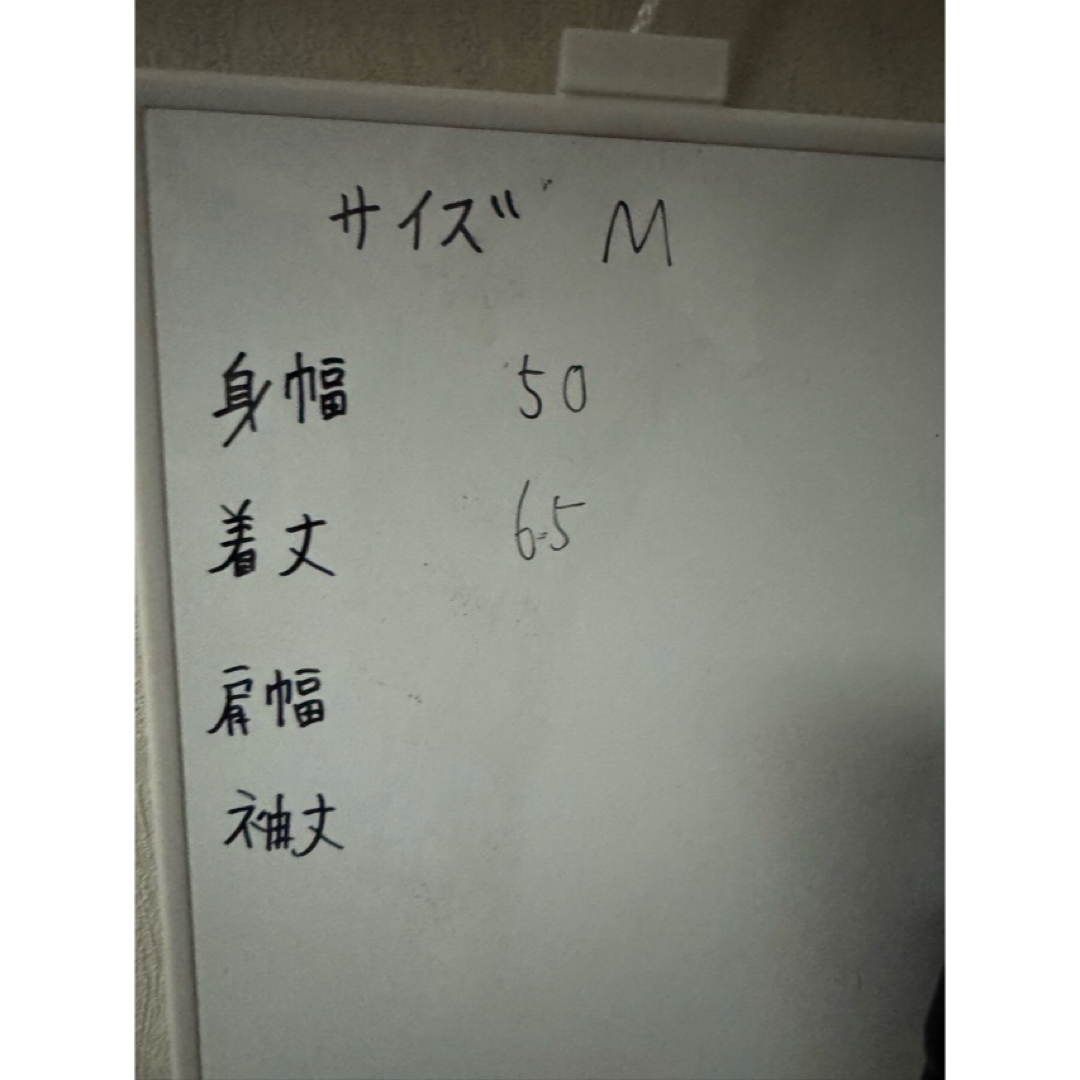 サイズ M
身幅 50
着丈 65
肩幅
袖丈